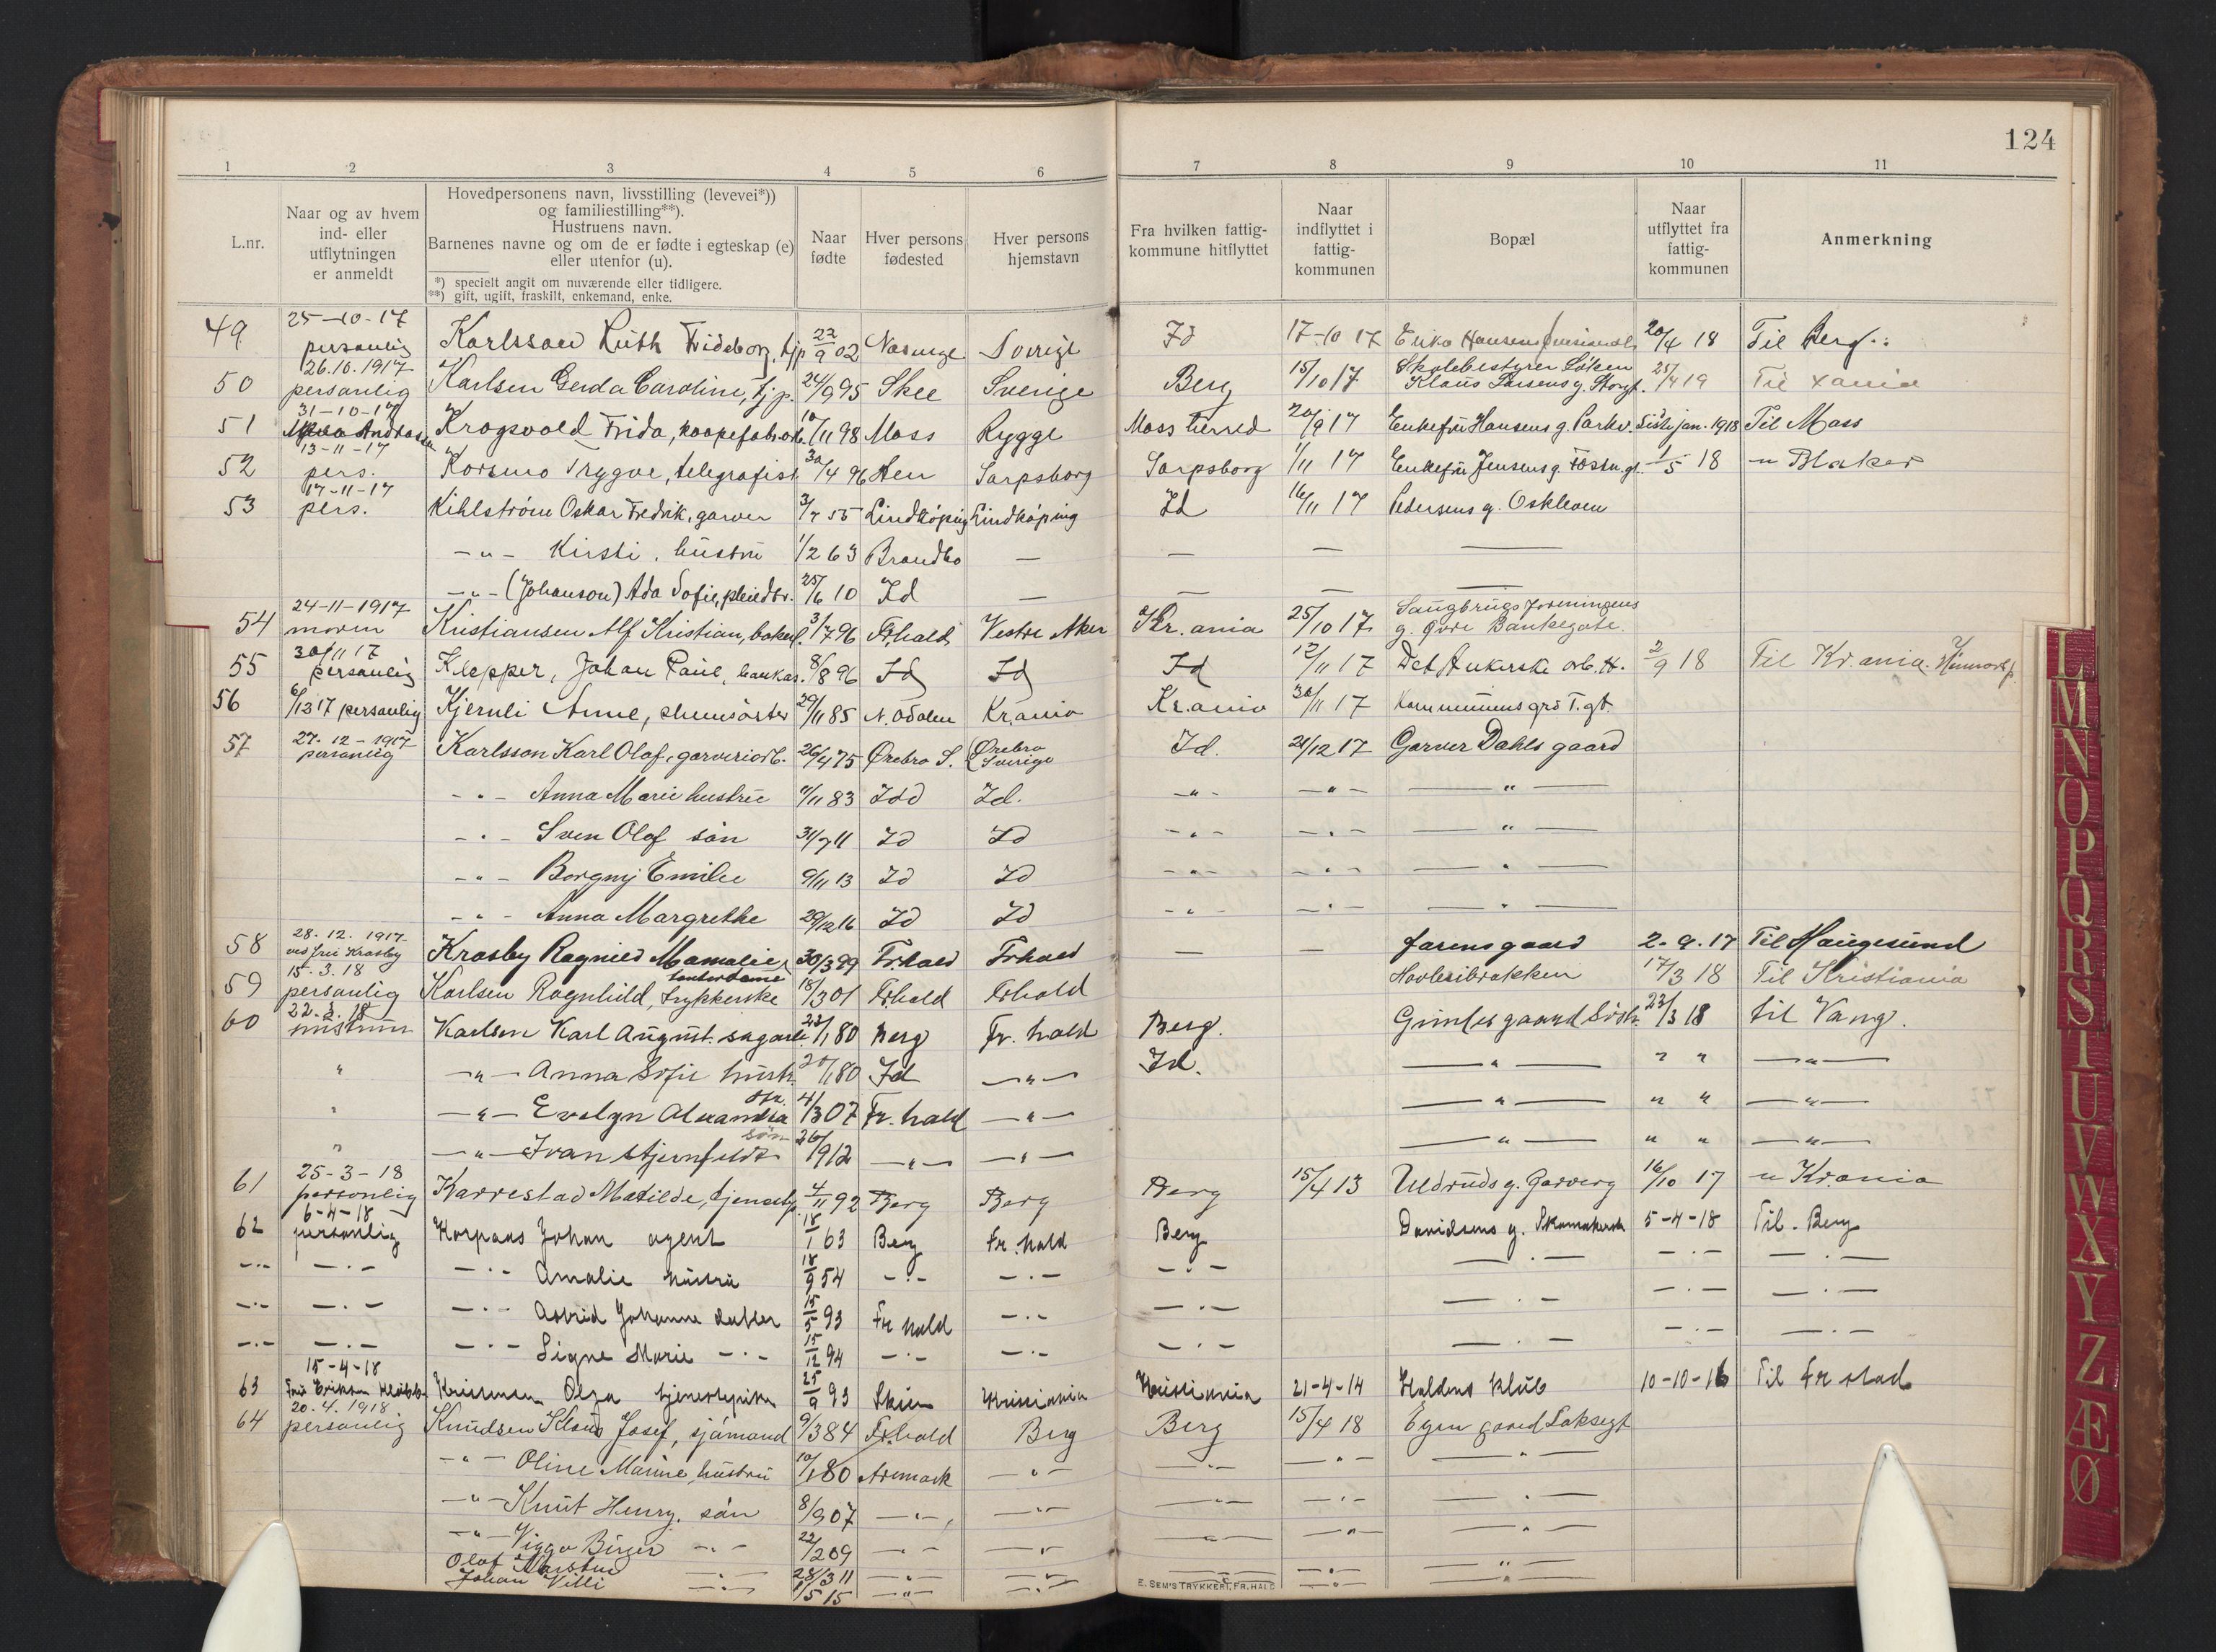 124
1 2 3 4 5 6 7 8 9 10 11
L.nr.
Naar og av hvem ind- eller utflytningen er anmeldt
Hovedpersonens navn, livsstilling (levevei*)) og familiestilling**).
Hustruens navn.
Barnenes navne og om de er fødte i egteskap (e) eller utenfor (u).
*) specielt angit om nuværende eller tidligere.
**) gift, ugift, fraskilt, enkemand, enke.
Naar fødte
Hver persons fødested
Hver persons hjemstavn
Fra hvilken fattigkommune hitflyttet
Naar indflyttet i fattigkommunen
Bopæl
Naar utflyttet fra fattigkommunen
Anmerkning
49 25-10-17 personlig Karlsson Ruth Frideborg, tjp 22/9 02 Sverige Id 17-10 17 Erika Hansens 20/4 18 Til Berg
50 26.10.1917 personlig Karlsen Gerda Caroline, tj.p. 24/9 95 Skee Sverige Berg 15/10 17 Skolebestyrer Løken Klaus Larsens g. Storgt. 25/4 19 Til Xania
51 31-10-17 Andrassen Krogsvold Frida, 10/11 98 Moss Rygge Moss herred 20/9 17 Enkefru Hansens g. Parkv. Sidst i jan. 1918 Til Moss
52 13-11-17 pers. Korsmo Trygve, telegrafist 30/4 96 Hen Sarpsborg Sarpsborg 1/11 17 Enkefru Jensens g. 1/5 18 " Blaker
53 17-11-17 pers. Kihlstrøm Oskar Fredrik, garver 3/7 55 Lindköping Lindköping Id 16/11 17 Pedersens g. Oskleven
-"- Kirsti, hustru 1/2 63 — — — —
-"- (Johanson) Ada Sofie, pleiedtr. 25/6 10 Id — — — —
54 24-11-1917 moren Kristiansen Alf Kristian, 3/7 96 Frhald Vestre Aker Kr.ania 25/10 17 Saugbrugsforeningens g. Øvre Bankegate
55 30/11 17 personlig Klepper, Johan Paul, bankas. 8/8 96 Id Id Id 12/11 17 Det Ankerske 2/9 18 Til Kr.ania
56 6/12 17 personlig Kjernli Anne, 29/11 85 N. Odalen Kr.ania Kr.ania 30/11 17 Kommunens grd T.gt.
57 27-12-1917 personlig Karlsson Karl Olof, garveriarb. 26/4 75 Ørebro S. Ørebro Sverige Id. 21/12 17 Garver Dahls gaard
-"- Anna Marie hustru /11 83 Idd Id. -"- -"- -"-
-"- Sven Olof søn 31/7 11 Id Id -"- -"- -"-
-"- Borgny Emilie 9/11 13 Id Id -"- -"- -"-
-"- Anna Margrethe 29/12 16 Id Id -"- -"- -"-
58 28.12.1917 ved fru Krasby Krasby Ragnild Mamalie, kontordame 30/3 99 Fr.hald Frhald — — farens gaard 2-9-17 Til Haugesund
59 15.3.18 personlig Karlsen Ragnhild, trykkerske 18/3 01 Frhald Frhald 17/3 18 Til Kristiania
60 22.3.18 hustruen Karlsen Karl August. sagarb. 23/1 80 Berg Fr. hald Berg. 23/3 18 til Vang.
" -"- Anna Sofie hustr. 20/1 80 Id -"- Id. -"- " " -"-
" -"- Evelyn Alexandra dtr. 4/3 07 Fr. hald -"- -"- " " -"-
" -"- Ivan Stjernfeldt søn 26/9 12 -"- -"- -"- " " -"-
61 25-3-18 personlig Karrestad Matilde, 4/11 92 Berg Berg Berg 15/4 13 16/10 17 " Kr.ania
62 6-4-18 personlig Korpaas Johan agent 18/1 63 Berg Fr. hald Berg Davidsens g. 5-4-18 Til. Berg
-"- -"- -"- Amalie hustru 18/9 54 -"- -"- -"- -"- -"- -"-
-"- -"- -"- Astrid Johanne datter 15/5 93 Fr hald -"- -"- -"- -"- -"-
-"- -"- -"- Signe Marie -"- 15/12 94 -"- -"- -"- -"- -"- -"-
63 15-4-18 Frk Eriksen Klubb. Olga tjenestepike 25/9 93 Skien Kristiania Kristiania 21-4-14 Haldens Klub 10-10-16 Til Fr stad
64 20.4.1918 personlig Knudsen Klaus Josef, sjømand 9/3 84 Fr.hald Berg Berg 15/4 18 Egen gaard Laksegt
-"- Oline Marine hustru 10/1 80 Aremark -"- -"- -"- -"-
-"- Knut Henry, søn 8/9 07 -"- -"- -"- -"- -"-
-"- Viggo Birger -"- 22/2 09 -"- -"- -"- -"- -"-
Olaf -"- 28/3 11 -"- -"- -"- -"- -"-
Johan Villi -"- 1/5 15 -"- -"- -"- -"- -"-
E. SEM'S TRYKKERI, FR.HALD
L
M
N
O
P
Q
R
S
T
U
V
W
X
Y
Z
Æ
Ø